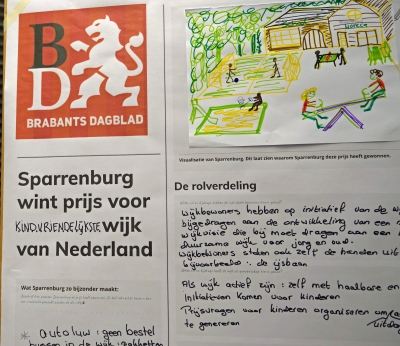 B
D
BRABANTS DAGBLAD
Sparrenburg
wint prijs voor
KINDVRIENDELIJKSTE wijk
van Nederland
Wat Sparrenburg zo bijzonder maakt:
* autoluw : geen bestel
bussen in de wijk : pakketten
Visualisatie van Sparrenburg. Dit laat zien waarom Sparrenburg deze prijs heeft gewonnen.
De rolverdeling
wijkbewoners hebben op initiatief van de w
bijgedragen aan de ontwikkeling van een
wijkvisie die bij moet dragen aan een
duurzame wijk voor jong en oud.
wijkbewoners staken ook zelf de handen uit
bijvoorbeeld : de ijsbaan
Als wijk actief zijn : zelf met haalbare en
initiatieven komen voor kinderen
Prijsvragen voor kinderen organiseren om
te genereren